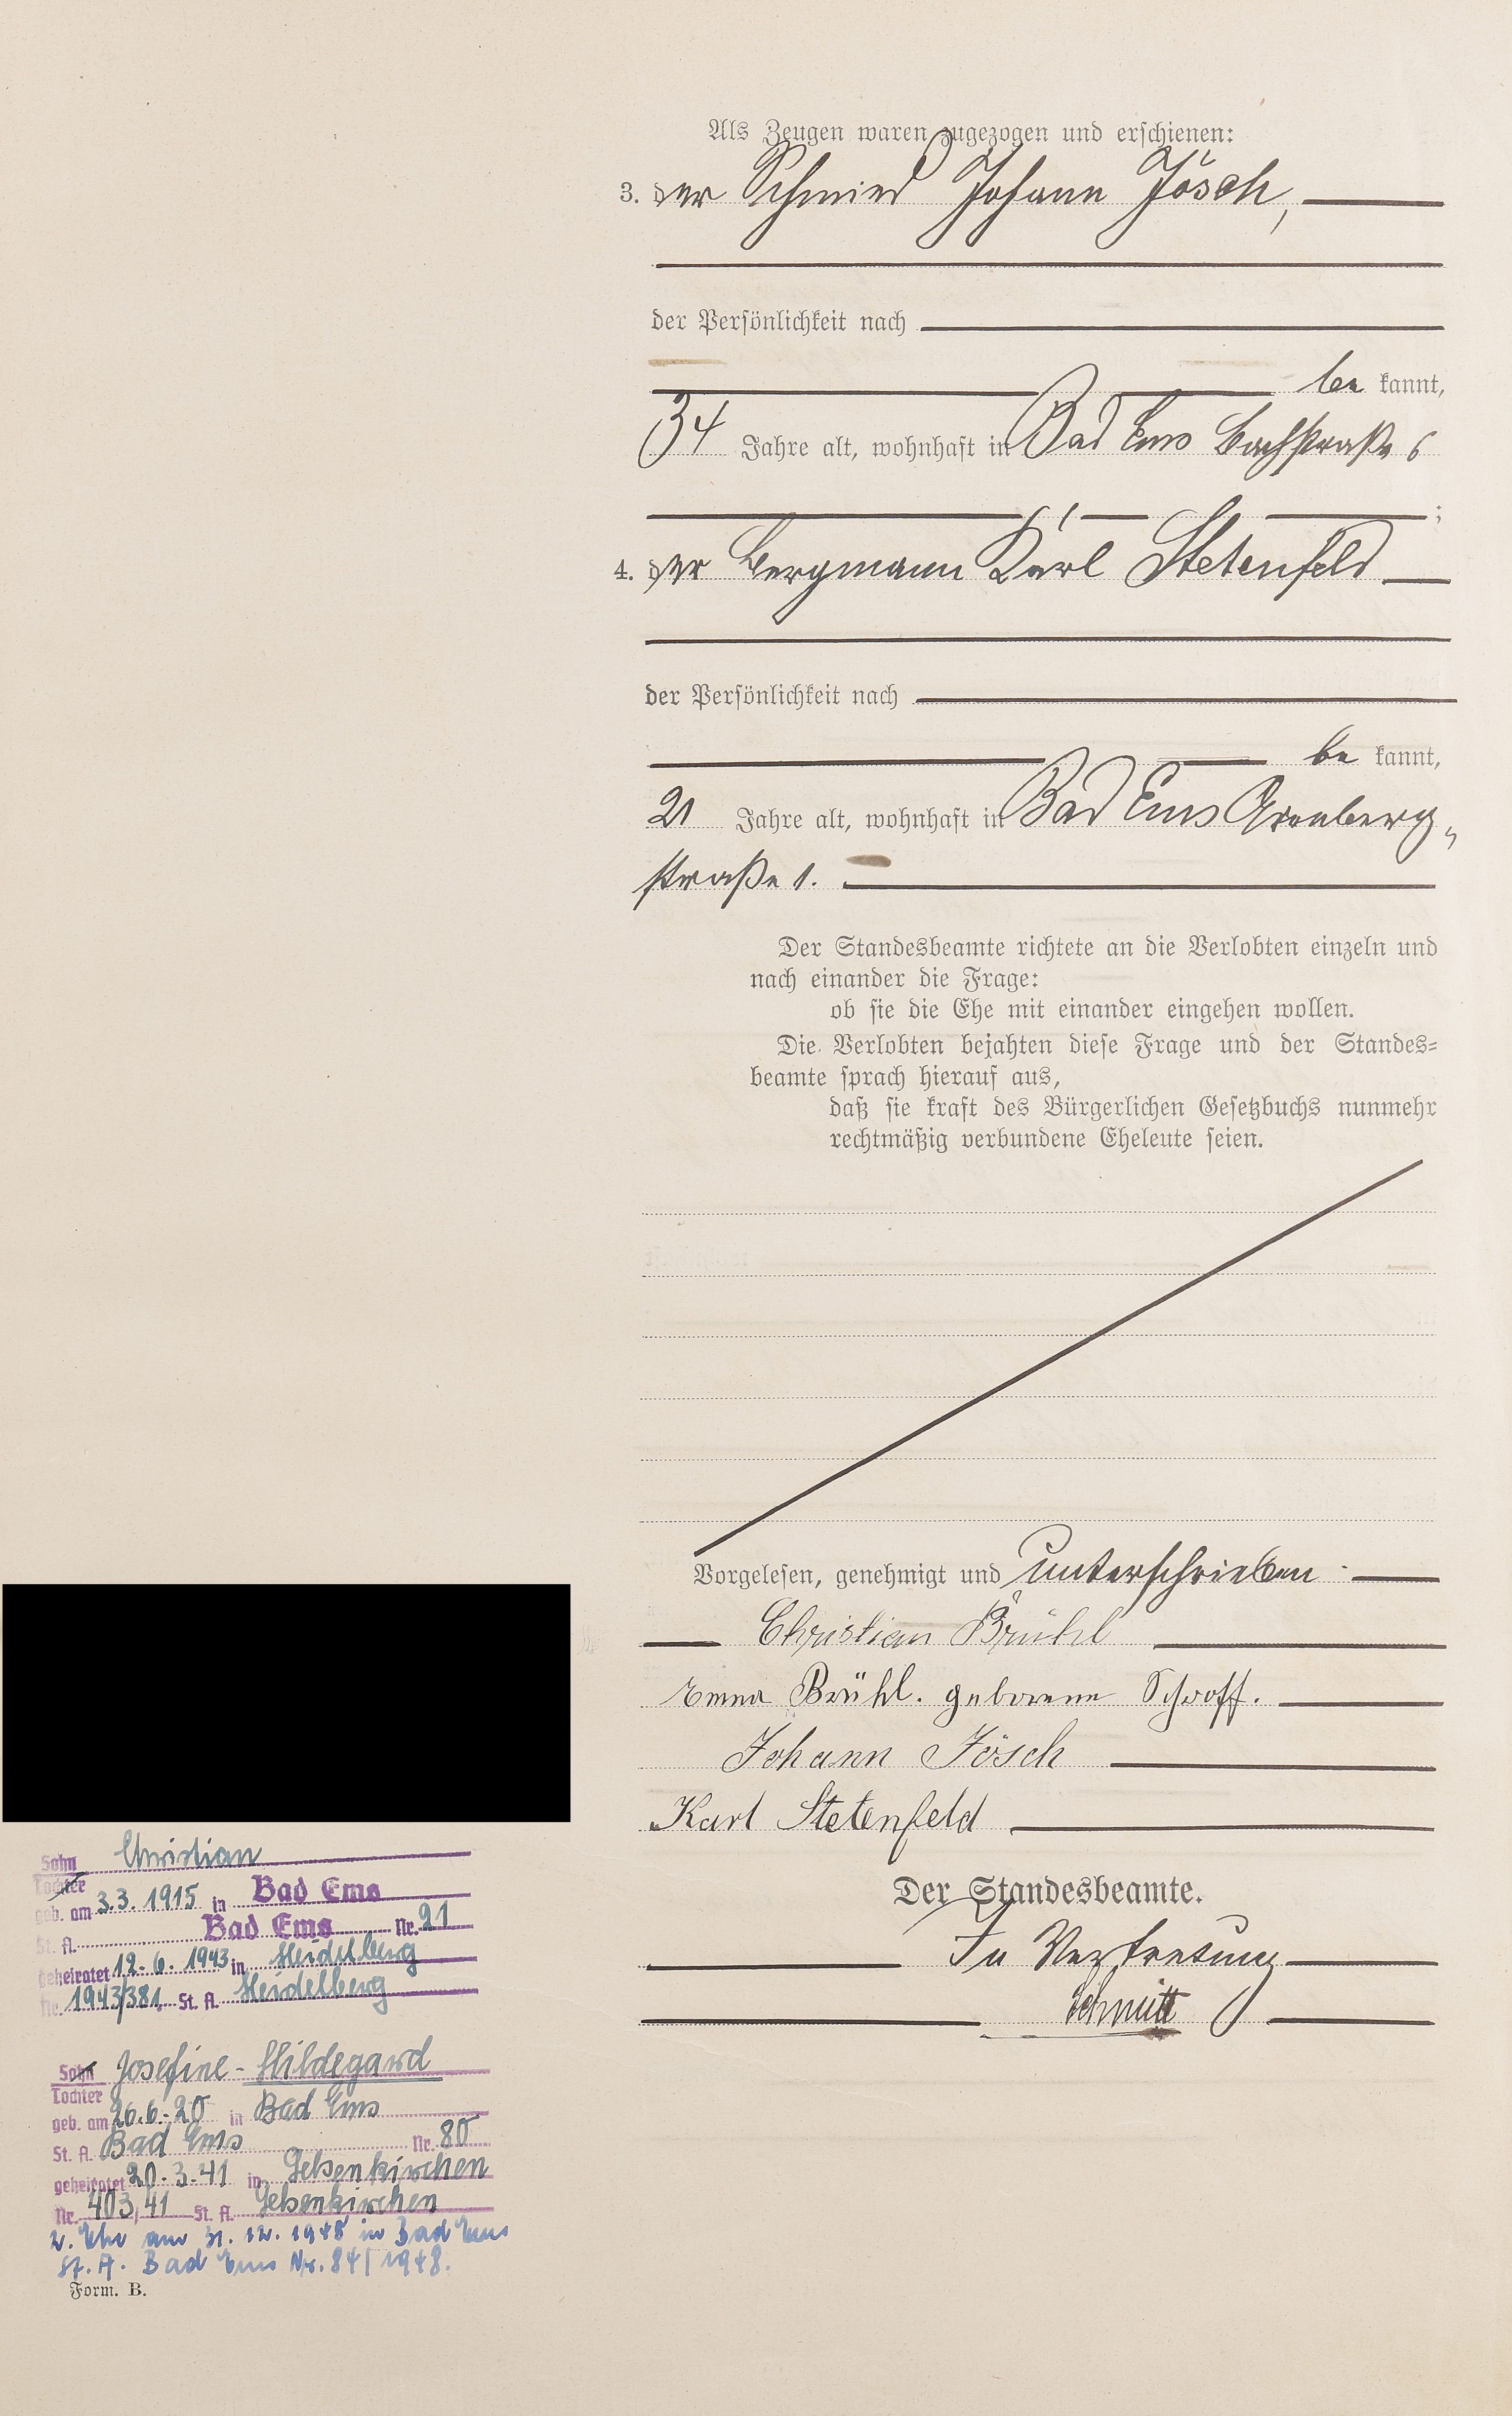 Als Zeugen waren zugezogen und erschienen:
3. der Schmied Johann Jösch,
der Persönlichkeit nach
be kannt,
34 Jahre alt, wohnhaft in Bad Ems Bachstraße 6
;
4. der Bergmann Karl Stetenfeld
der Persönlichkeit nach
be kannt,
21 Jahre alt, wohnhaft in Bad Ems Arenberg-
straße 1.
Der Standesbeamte richtete an die Verlobten einzeln und
nach einander die Frage:
ob sie die Ehe mit einander eingehen wollen.
Die Verlobten bejahten diese Frage und der Standes-
beamte sprach hierauf aus,
daß sie kraft des Bürgerlichen Gesetzbuchs nunmehr
rechtmäßig verbundene Eheleute seien.
Vorgelesen, genehmigt und unterschrieben
Christian Brühl
Emma Brühl. geborene Schroff.
Johann Jösch
Karl Stetenfeld
Der Standesbeamte.
In Vertretung
Schmitt
Sohn Christian
Tochter
geb. am 3.3.1915 in Bad Ems
St. A. Bad Ems Nr. 21
geheiratet 12.6.1943 in Heidelberg
Nr. 1943/381 St. A. Heidelberg
Sohn Josefine-Hildegard
Tochter
geb. am 26.6.20 in Bad Ems
St. A. Bad Ems Nr. 80
geheiratet 20.3.41 in Gelsenkirchen
Nr. 403/41 St. A. Gelsenkirchen
2. Ehe am 31.12.1948 in Bad Ems
St. A. Bad Ems Nr. 84/1948.
Form. B.